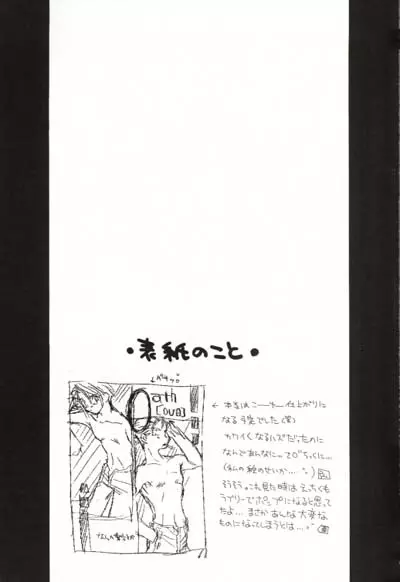 ・表紙のこと・
ath
[OVA]
← 本当はこーゆー仕上がりに
なる予定でした(笑)
カワイくなるハズだったのに
なんであんなに
(私の絵のせいか…
そうそう、コレ見た時は
ラブリーでポップになると思って
たよ…まさかあんな大変な
ものになってしまうとは…